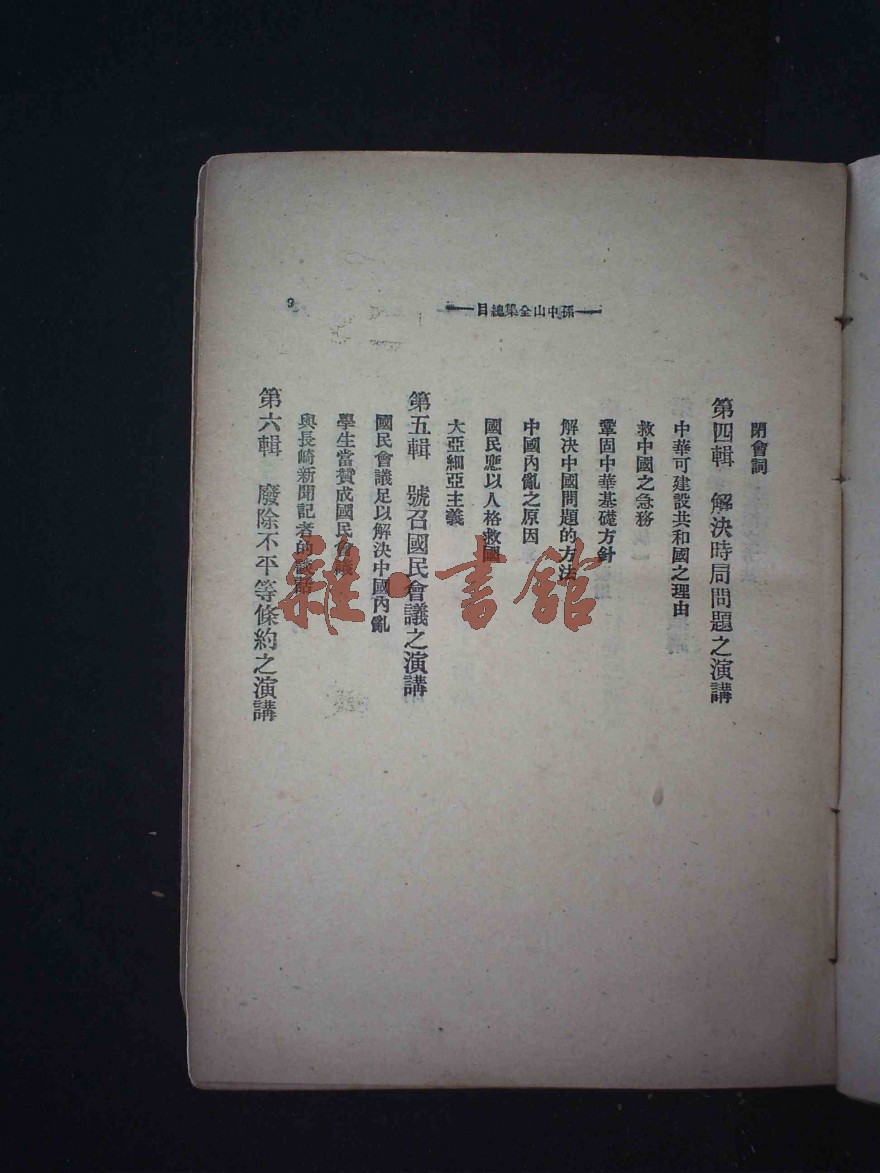 孫中山全集總目
9
閉會詞
第四輯 解決時局問題之演講
中華可建設共和國之理由
救中國之急務
鞏固中華基礎方針
解決中國問題的方法
中國內亂之原因
國民應以人格救國
大亞細亞主義
第五輯 號召國民會議之演講
國民會議足以解決中國內亂
學生當贊成國民會議
與長崎新聞記者的
第六輯 廢除不平等條約之演講
雜·書館